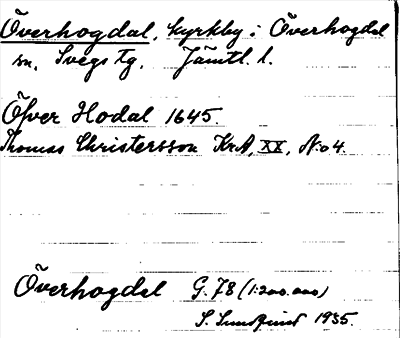 Överhogdal, kyrkby i Överhogdal
sn. Svegs tg. Jämtl. l.
Öfver Hodal 1645.
Thomas Christersson KrA, XX, N:o 4.
Överhogdal G. 78 (1:200.000)
S. 1935.